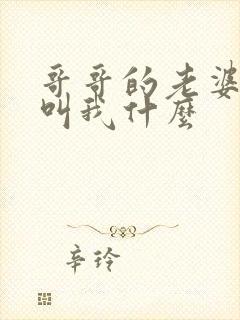 哥哥的老婆
叫我什麼
辛玲